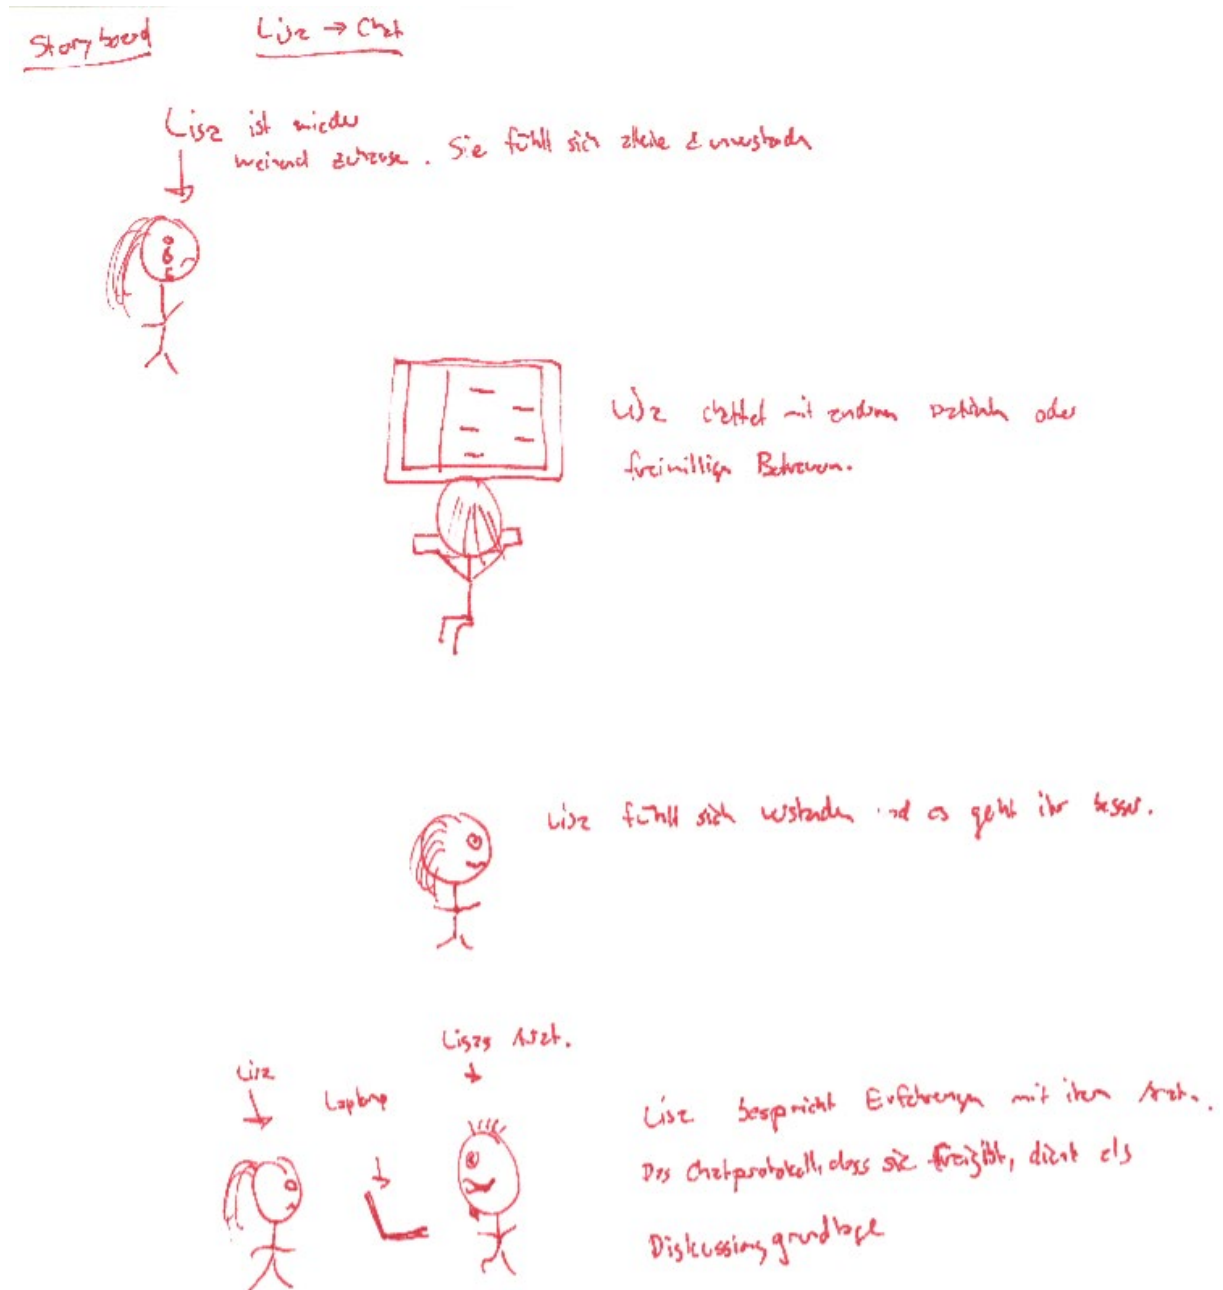 Storyboard
Lisa → Chat
Lisa ist wieder
weinend zuhause. Sie fühlt sich alleine & unverstanden
Lisa chattet mit anderen Patienten oder
freiwilligen Betreuern.
Lisa fühlt sich verstanden und es geht ihr besser.
Lisas Arzt.
Lisa
Laptop
Lisa bespricht Erfahrungen mit ihrem Arzt.
Das Chatprotokoll, dass sie freigibt, dient als
Diskussionsgrundlage